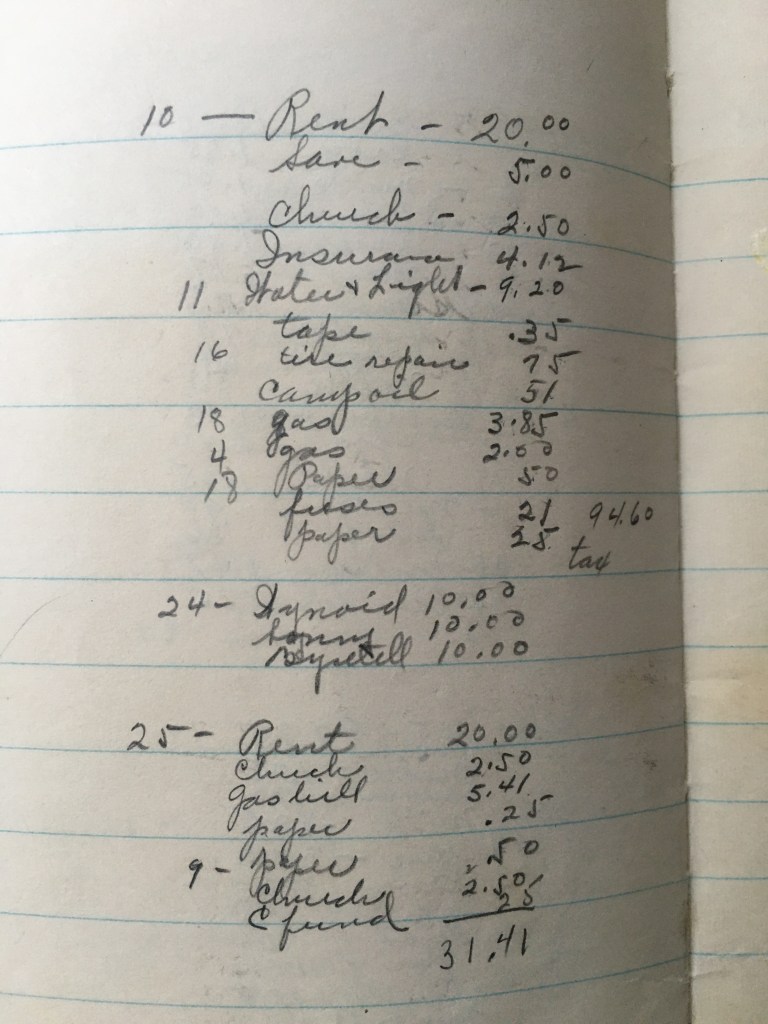 10 — Rent - 20.00
Save - 5.00
Church - 2.50
Insurance 4.12
11 Water & Light - 9.20
tape .35
16 tire repair 75
Camp oil 51
18 gas 3.85
4 gas 2.00
18 Paper 50
fuses 21 94.60
paper 25 tax
24 - 10.00
10.00
10.00
25 - Rent 20.00
Church 2.50
gas bill 5.41
paper .25
9 - paper .50
Church 2.50
C fund 25
31.41